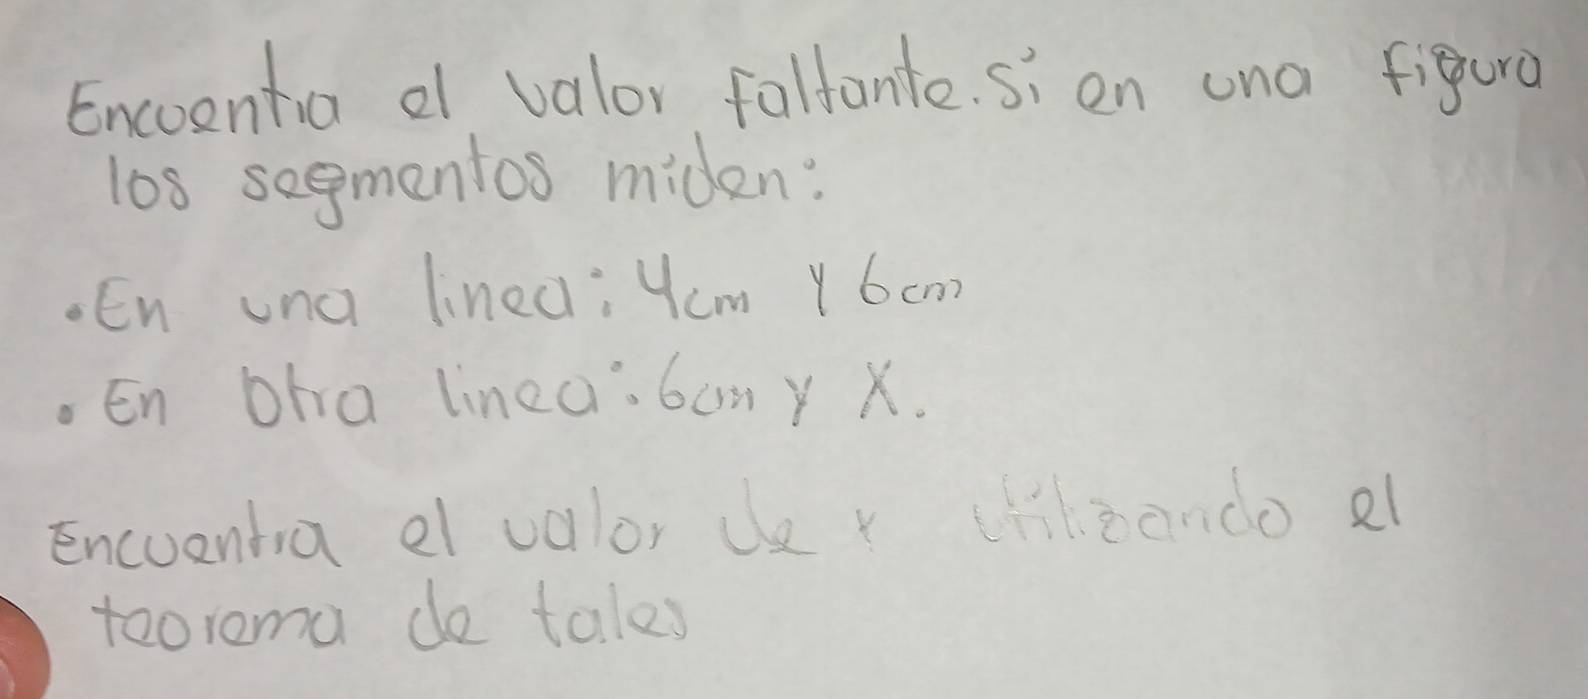 Encuentra el valor faltante. Si en una figura
los segmentos miden:
• En una linea: 4cm y 6cm
• En otra linea: 6cm y X.
Encuentra el valor de x utilizando el
teorema de tales